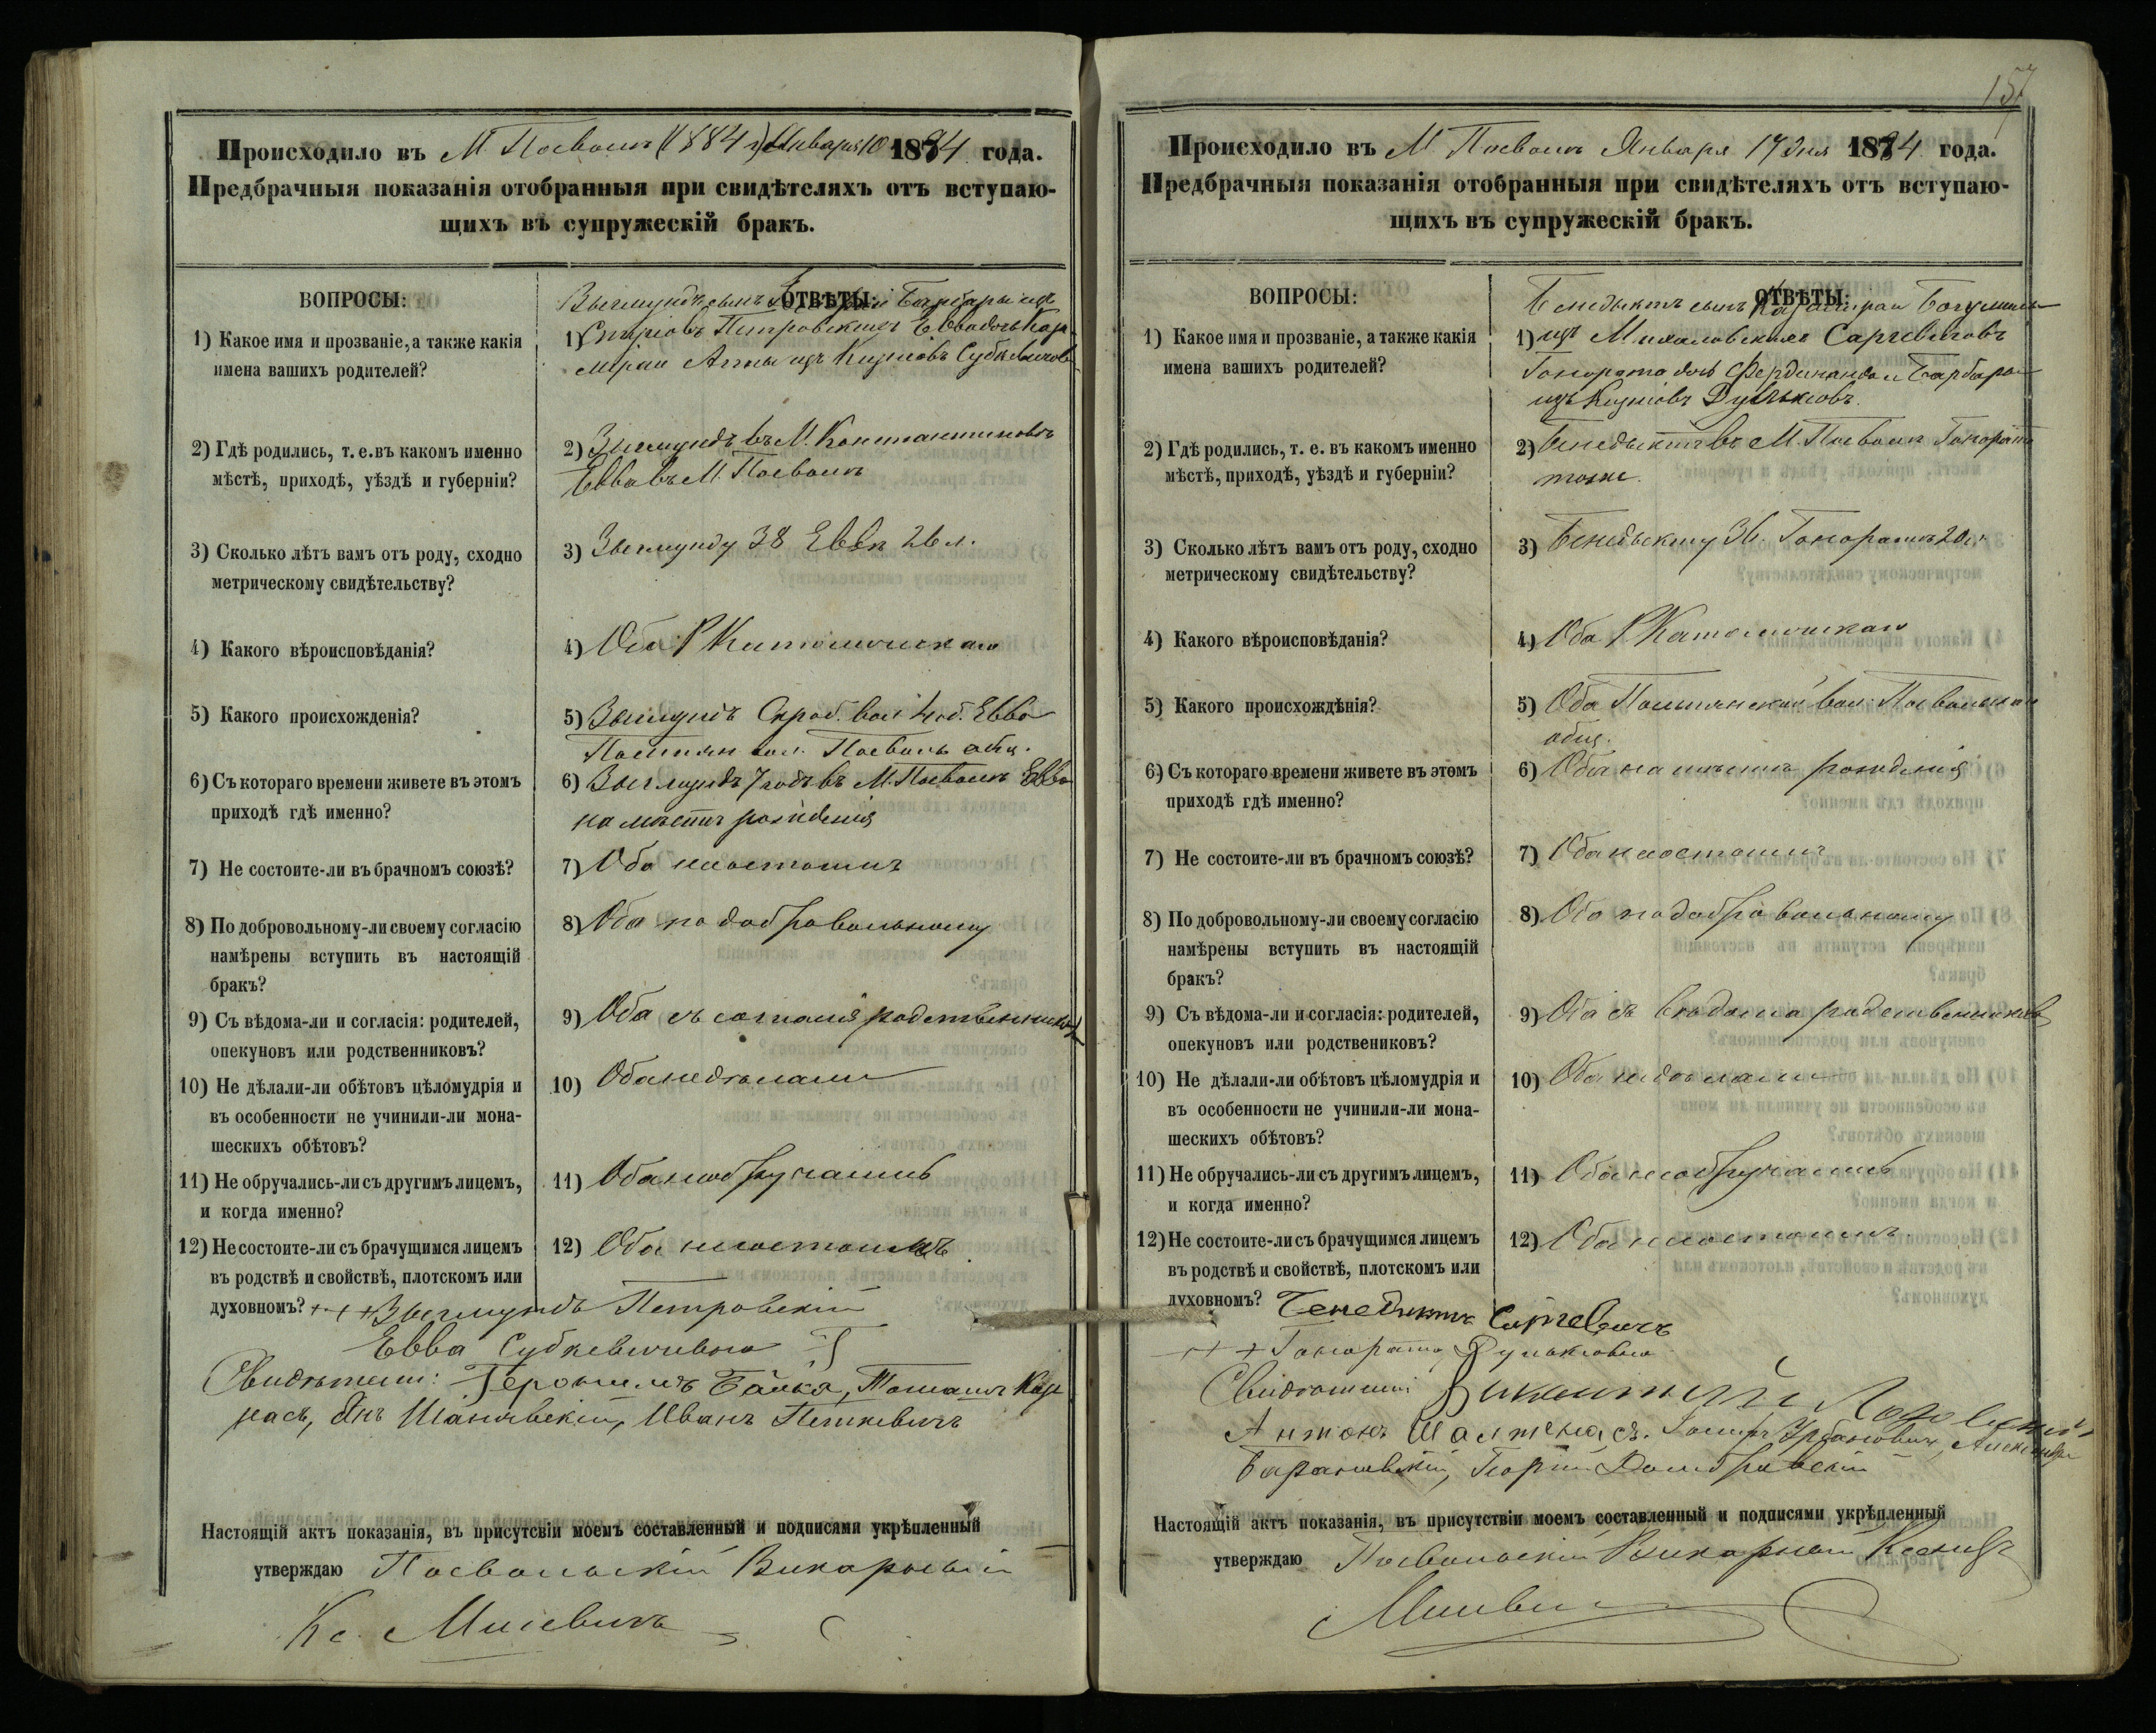 Происходило въ М. Посволь (1884 г.) Января 10 1884 года.
Предбрачныя показанія отобранныя при свидѣтеляхъ отъ вступаю-
щихъ въ супружескій бракъ.
ВОПРОСЫ:
ОТВѢТЫ:
1) Какое имя и прозваніе, а также какія
имена вашихъ родителей?
Зыгмундъ сынъ Барбары изъ
1) Петровскихъ Евва дочь Кази-
мира и Анны изъ Субкевичовъ
2) Гдѣ родились, т. е. въ какомъ именно
мѣстѣ, приходѣ, уѣздѣ и губерніи?
2) Зыгмундъ въ М. Константиновѣ
Евва въ М. Посволѣ
3) Сколько лѣтъ вамъ отъ роду, сходно
метрическому свидѣтельству?
3) Зыгмунду 38 Еввѣ 26 л.
4) Какого вѣроисповѣданія?
4) Оба Р Католическаго
5) Какого происхожденія?
5) Зыгмундъ Скроб. вол. Евва
Посволь общ.
6) Съ котораго времени живете въ этомъ
приходѣ гдѣ именно?
6) Зыгмундъ 7 годъ въ М. Посволѣ Евва
на мѣстѣ рожденія
7) Не состоите-ли въ брачномъ союзѣ?
7) Оба несостоимъ
8) По добровольному-ли своему согласію
намѣрены вступить въ настоящій
бракъ?
8) Оба по добровольному
9) Съ вѣдома-ли и согласія: родителей,
опекуновъ или родственниковъ?
9) Оба съ согласія родственниковъ
10) Не дѣлали-ли обѣтовъ цѣломудрія и
въ особенности не учинили-ли мона-
шескихъ обѣтовъ?
10) Оба недѣлали
11) Не обручались-ли съ другимъ лицемъ,
и когда именно?
11) Оба необручались
12) Не состоите-ли съ брачущимся лицемъ
въ родствѣ и свойствѣ, плотскомъ или
духовномъ?
12) Оба несостоимъ
+++ Зыгмундъ Петровскій
Евва Субкевичовна
Свидѣтели: Героnимъ Байка, Тамашъ Каз
насъ, Янъ Шаnявскій, Иванъ Петкевичъ
Настоящій актъ показанія, въ присутсвіи моемъ составленный и подписями укрѣпленный
утверждаю Посвольскій Викарный
Кс. Милевичъ
157
Происходило въ М Посволь Января 17 дня 1884 года.
Предбрачныя показанія отобранныя при свидѣтеляхъ отъ вступаю-
щихъ въ супружескій бракъ.
ВОПРОСЫ:
ОТВѢТЫ:
1) Какое имя и прозваніе, а также какія
имена вашихъ родителей?
Бенедыктъ сынъ Казимира и Богумилы
1) изъ Михаловскихъ Саргевичовъ
Гонората дочь Фердинанда и Барбары
изъ Дулькювъ.
2) Гдѣ родились, т. е. въ какомъ именно
мѣстѣ, приходѣ, уѣздѣ и губерніи?
2) Бенедыктъ въ М. Посволѣ Гонората
тоже.
3) Сколько лѣтъ вамъ отъ роду, сходно
метрическому свидѣтельству?
3) Бенедыкту 36. Гоноратѣ 20 л.
4) Какого вѣроисповѣданія?
4) Оба Р Католическаго
5) Какого происхождѣнія?
5) Оба вол. Посвольскаго
общ.
6) Съ котораго времени живете въ этомъ
приходѣ гдѣ именно?
6) Оба на мѣстѣ рожденія
7) Не состоите-ли въ брачномъ союзѣ?
7) Оба несостоимъ
8) По добровольному-ли своему согласію
намѣрены вступить въ настоящій
бракъ?
8) Оба по добровольному
9) Съ вѣдома-ли и согласія: родителей,
опекуновъ или родствениковъ?
9) Оба съ вѣдома родственниковъ
10) Не дѣлали-ли обѣтовъ цѣломудрія и
въ особенности не учинили-ли мона-
шескихъ обѣтовъ?
10) Оба недѣлали
11) Не обручались-ли съ другимъ лицемъ,
и когда именно?
11) Оба необручались
12) Не состоите-ли съ брачущимся лицемъ
въ родствѣ и свойствѣ, плотскомъ или
духовномъ?
12) Оба несостоимъ.
Бенедиктъ Саргевичъ
+++ Гонората Дулькювна
Свидѣтели: Викентій
Антонъ Шалтенасъ. Урбановичъ, Александръ
Барановскій, Домбровскій
Настоящій актъ показанія, въ присутствіи моемъ составленный и подписями укрѣпленный
утверждаю Посвольскій Викарный Ксендзъ
Милевичъ